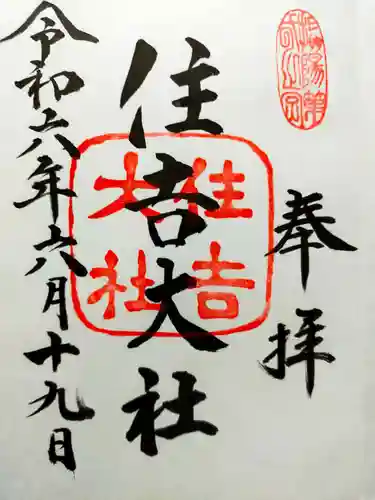 奉拝
住吉大社
住吉
大社
令和六年六月十九日